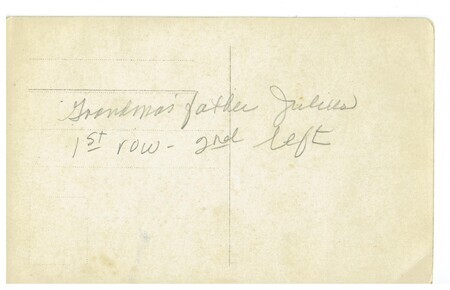 Grandma's father Julius
1st row - 2nd left